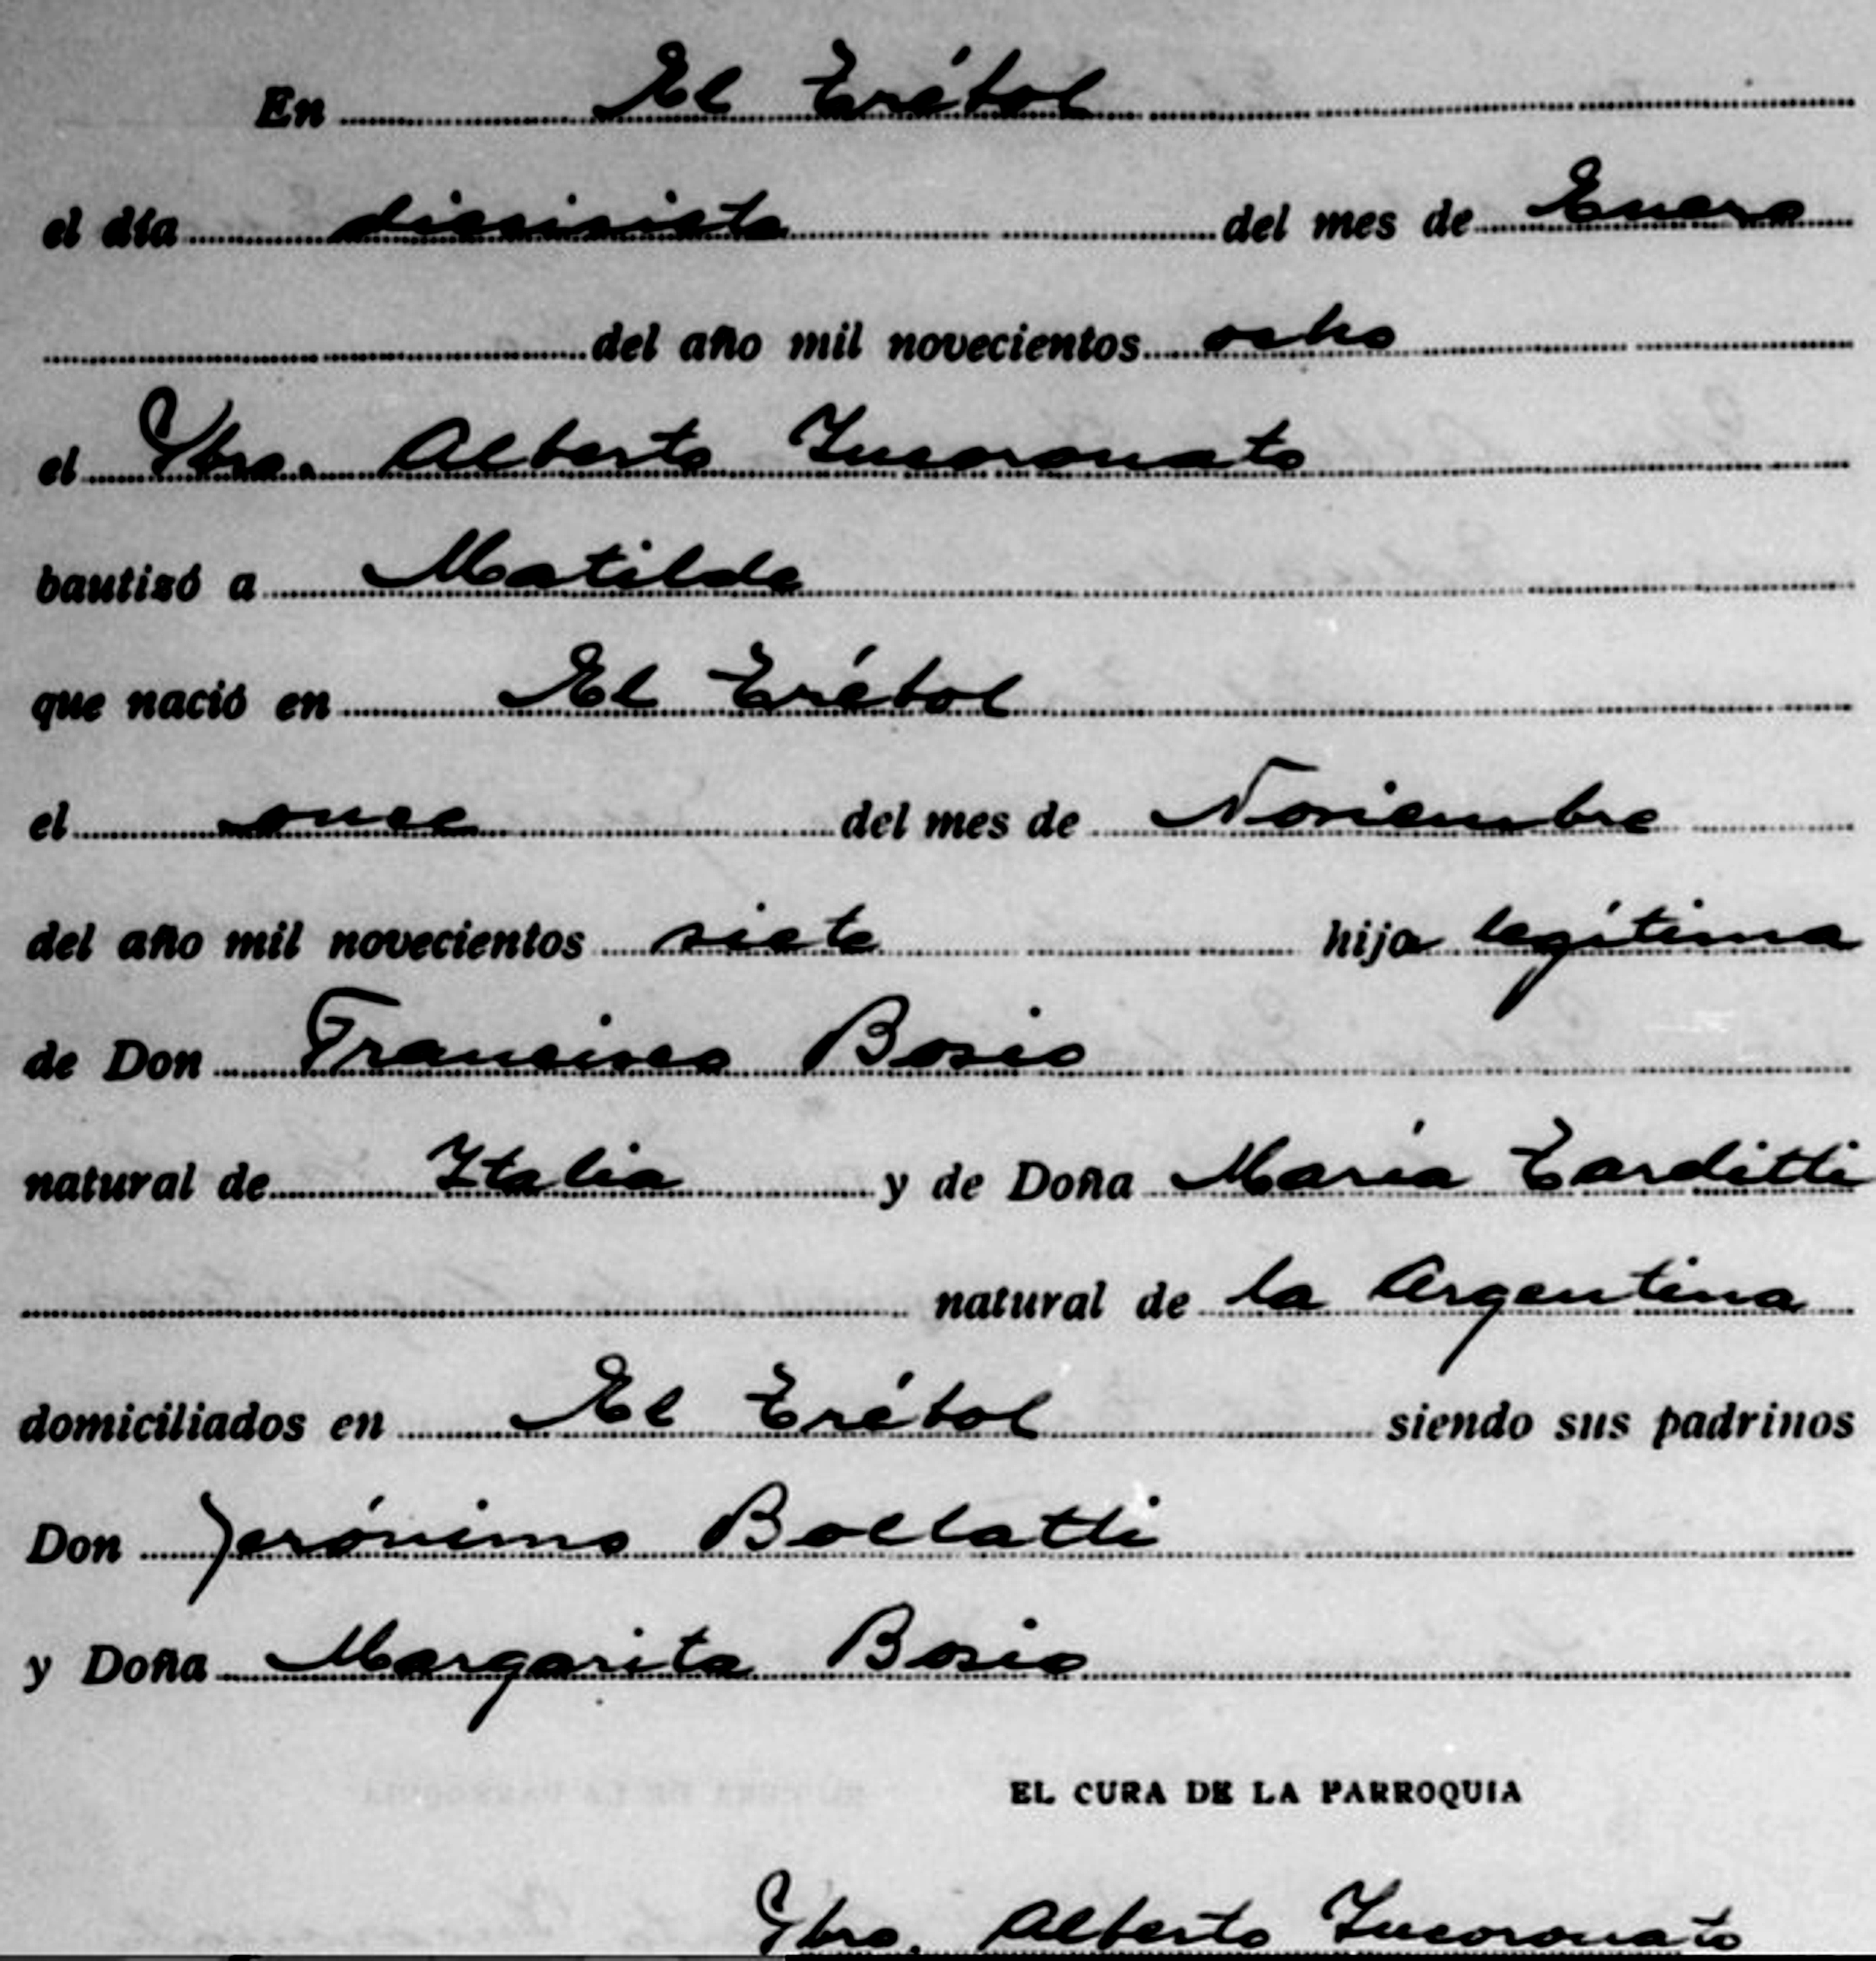 En El Trébol
el día diecisiete del mes de Enero
del año mil novecientos ocho
el Pbro. Alberto Incoronato
bautizó a Matilde
que nació en El Trébol
el once del mes de Noviembre
del año mil novecientos siete hija legítima
de Don Francisco Bosio
natural de Italia y de Doña María Tarditti
natural de la Argentina
domiciliados en El Trébol siendo sus padrinos
Don Jerónimo Bollatti
y Doña Margarita Bosio
EL CURA DE LA PARROQUIA
Pbro. Alberto Incoronato